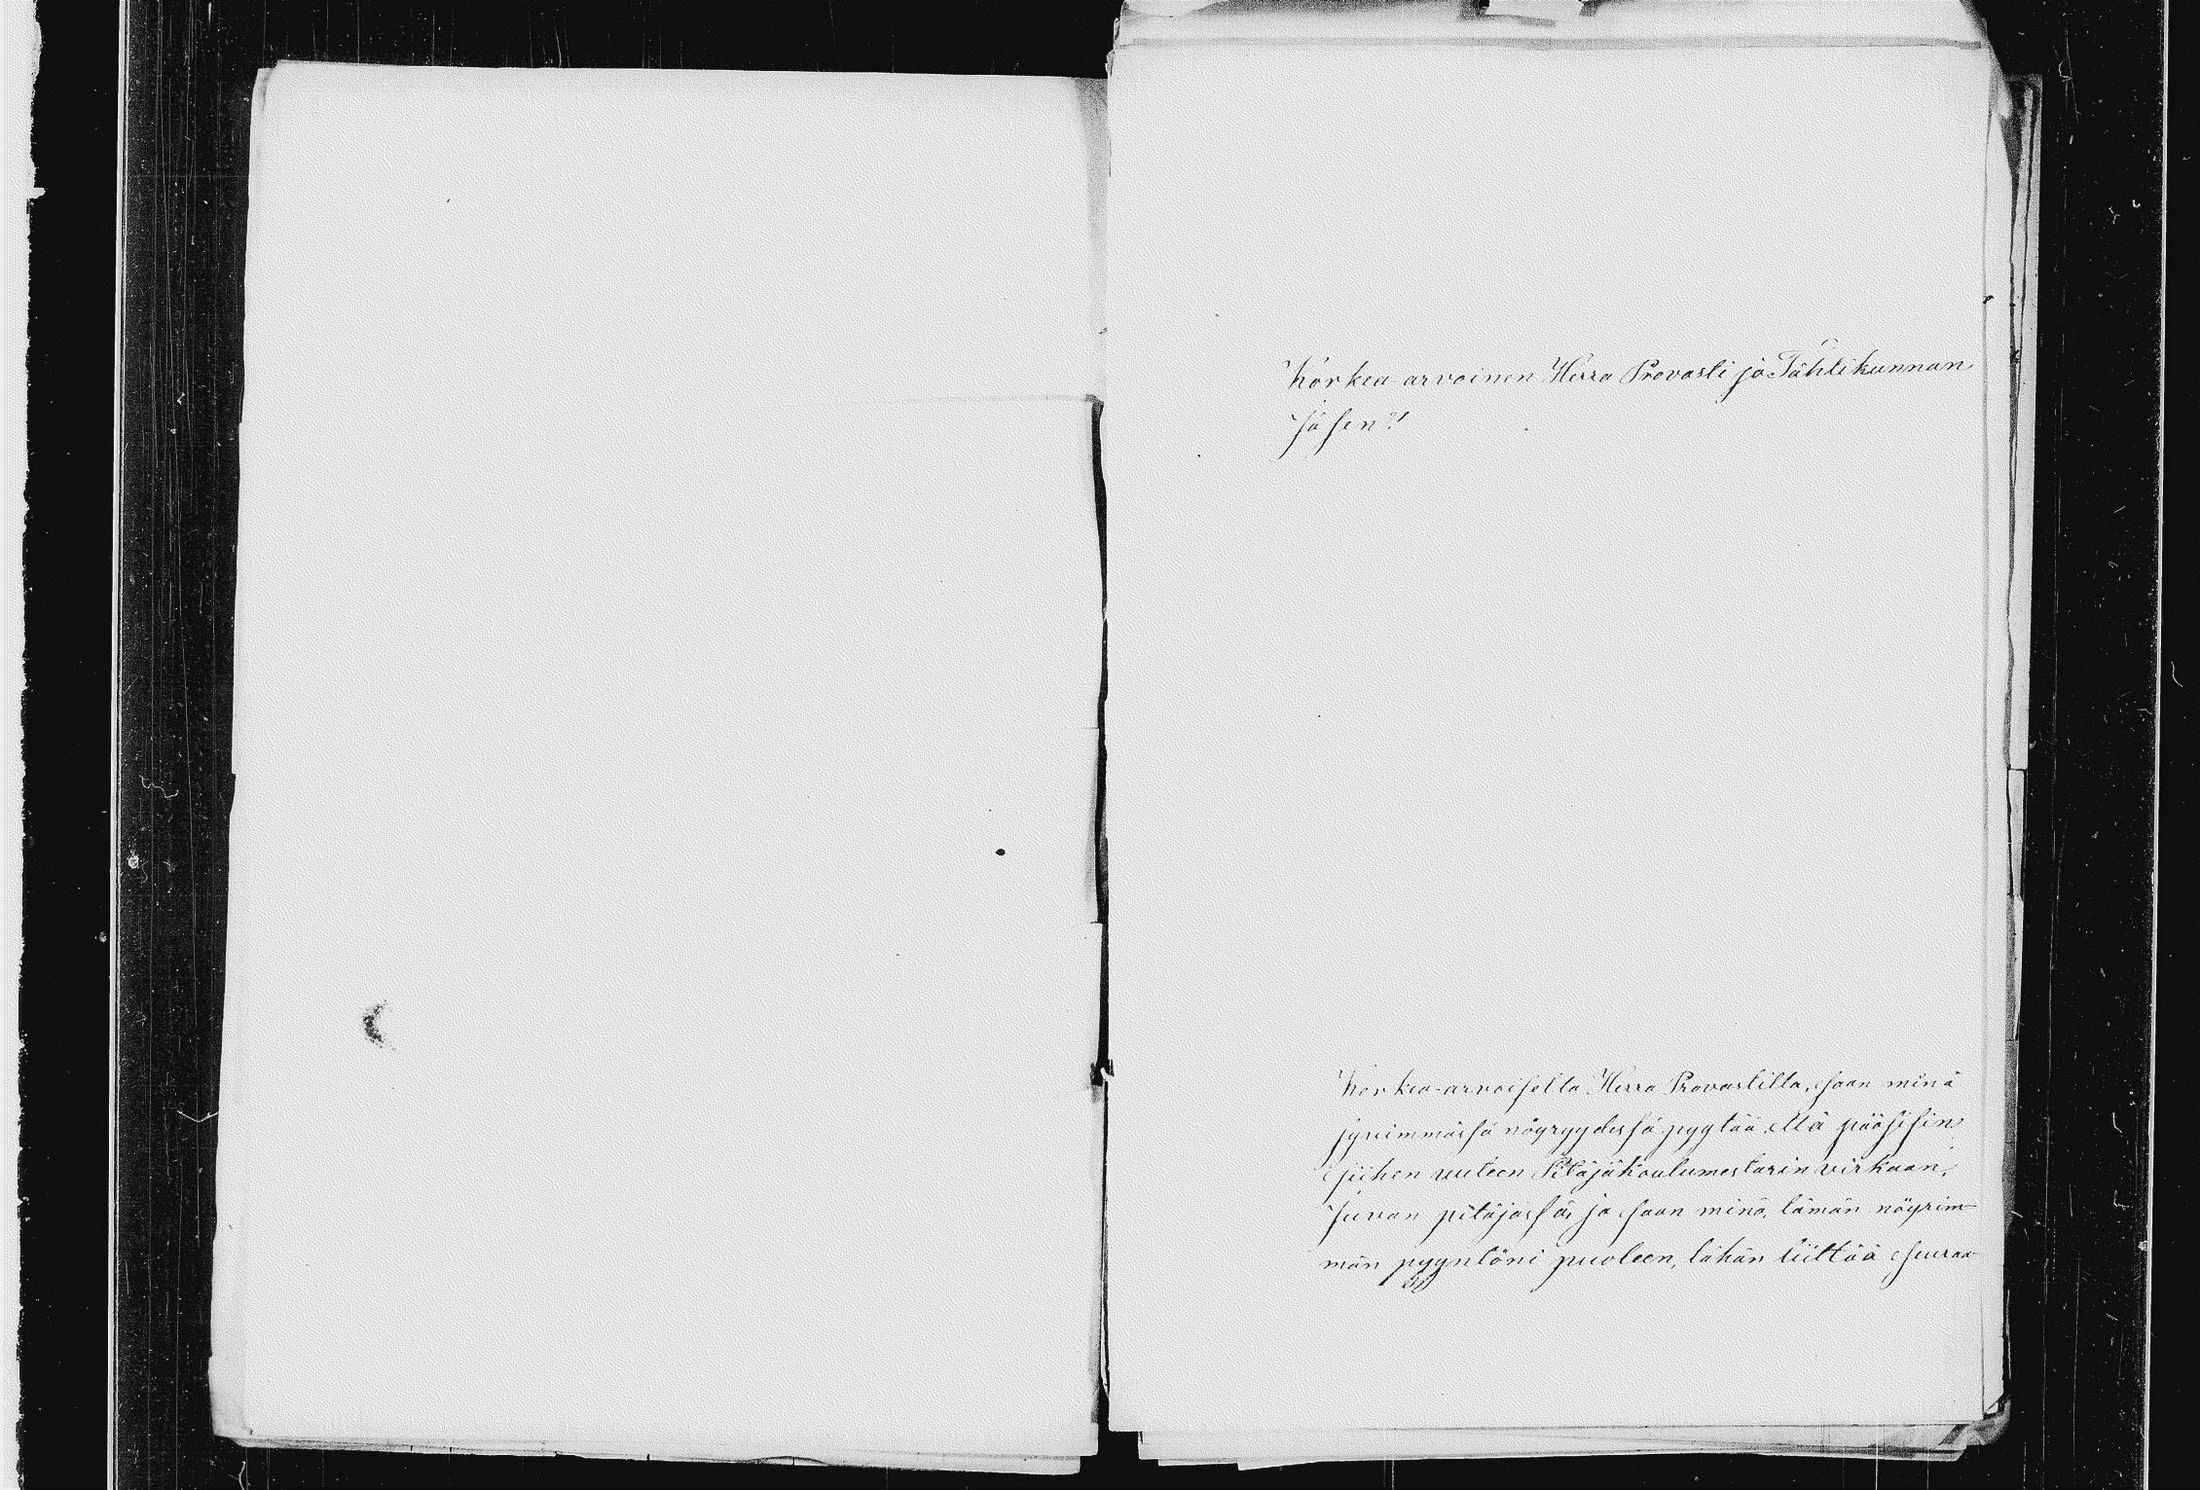 Korkea-arvoinen Herra Provasti ja Tähtikunnan
Jäsen!!
Korkea-arvoiselta Herra Provastilta, saan minä
syvimmässä nöyryydessä pyytää, että pääsisin
siihen uuteen Pitäjäkoulumestarin virkaan,
Juvan pitäjässä, ja saan minä, tämän nöyrim-
män pyyntöni puoleen, tähän liittää seuraa-